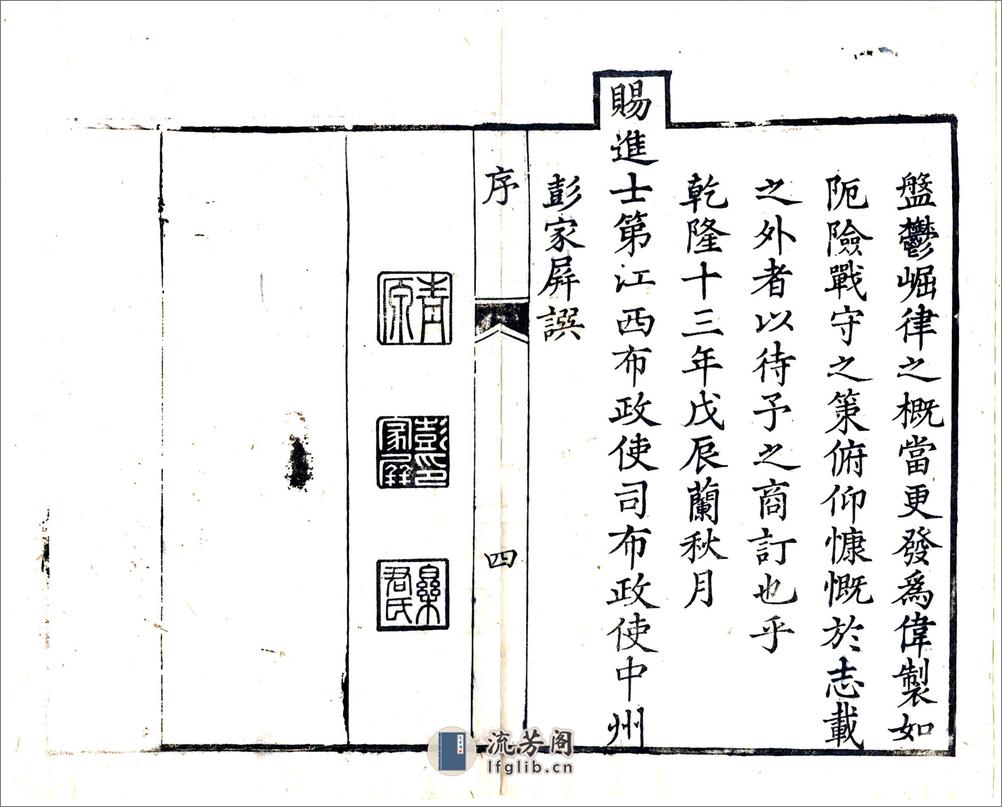 盤鬱崛律之概當更發爲偉製如
阨險戰守之策俯仰慷慨於志載
之外者以待予之商訂也乎
乾隆十三年戊辰蘭秋月
賜進士第江西布政使司布政使中州
彭家屏譔
序
四
青原
彭家屏印
君氏
流芳阁
lfglib.cn